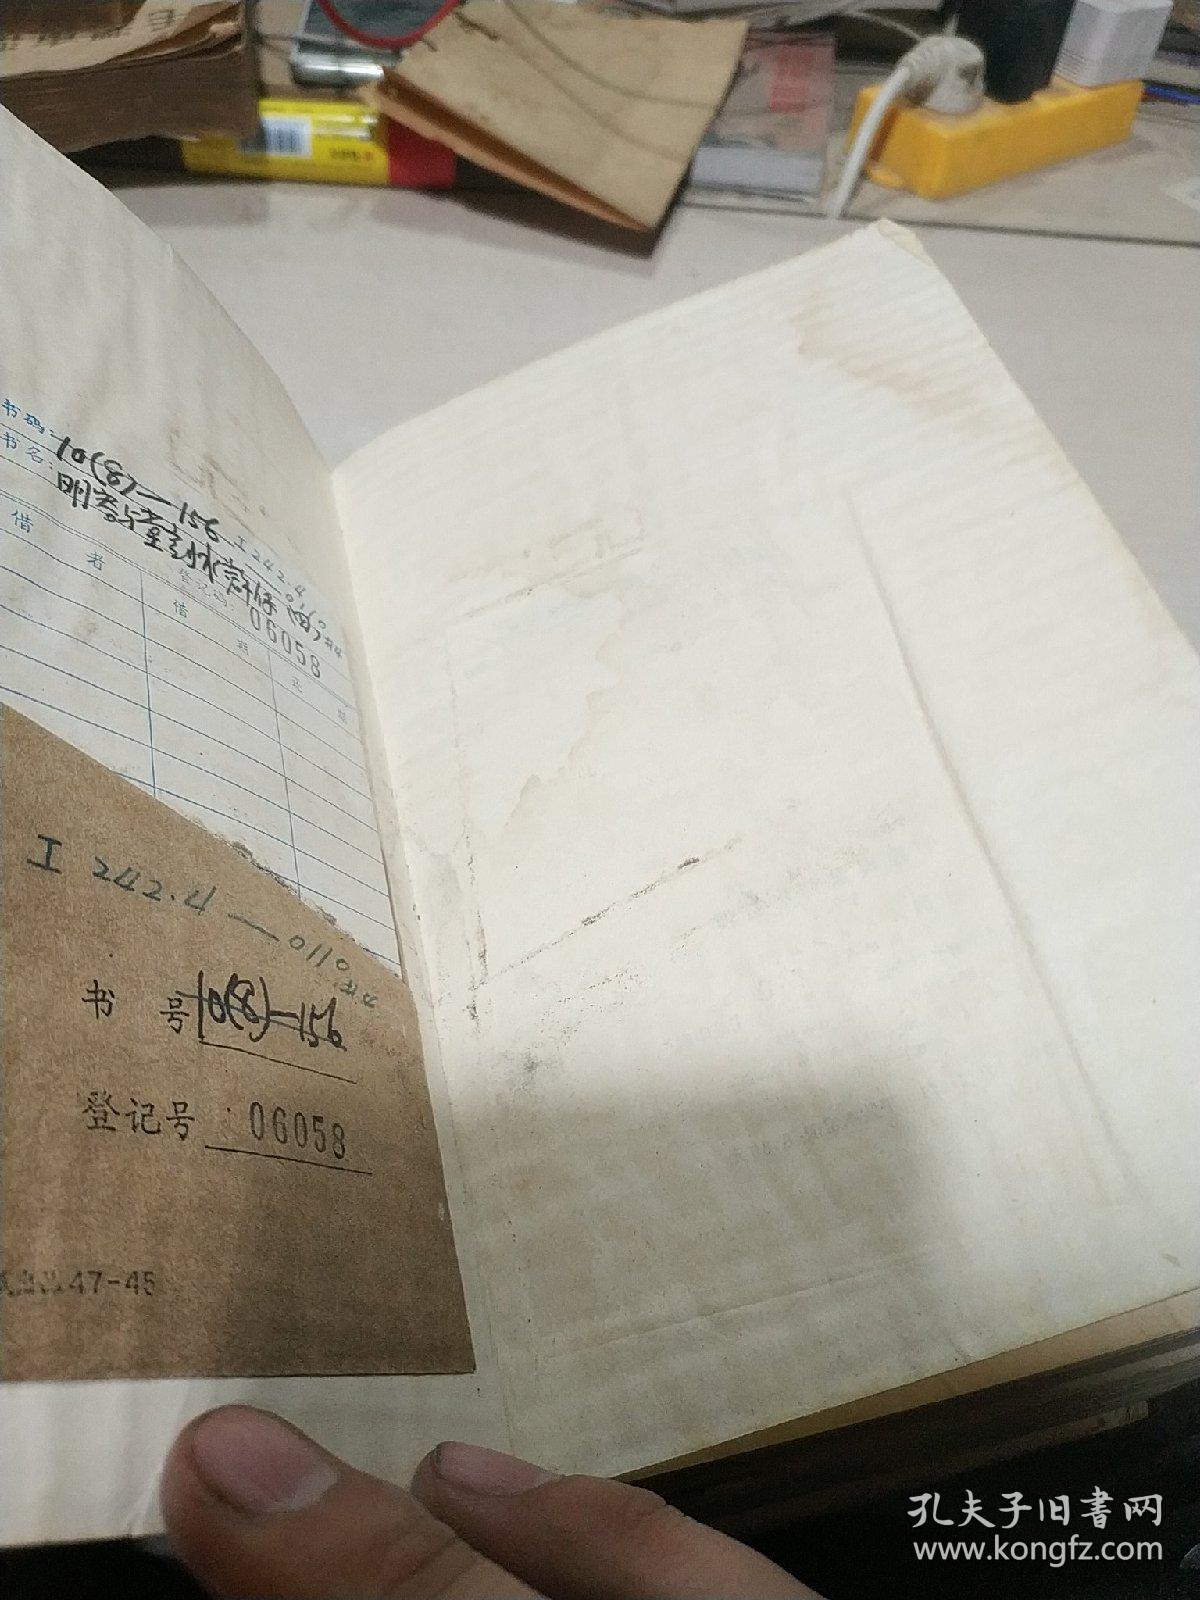 书码: 10(8)—156 I242.4
0110
#4
书名: 明容与堂刻水浒传(四)
登记码: 06058
借者 借期 还期
I 242.4—0110
#4
书 号 10(8)—156
登记号 06058
47-45
孔夫子旧書网
www.kongfz.com